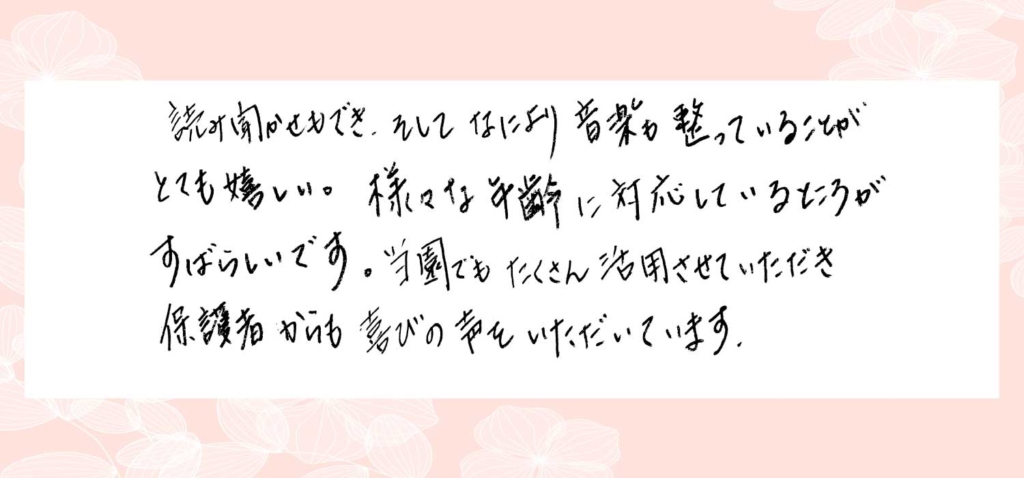 読み聞かせもでき、そしてなにより音楽も整っていることが
とても嬉しい。様々な年齢に対応しているところが
すばらしいです。当園でもたくさん活用させていただき
保護者からも喜びの声をいただいています。